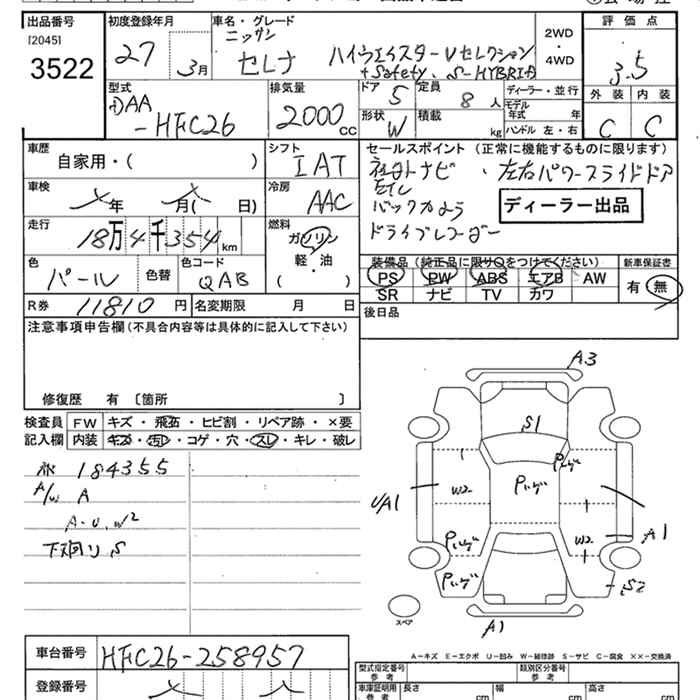 出品番号 初度登録年月 車名・グレード 評価点
[2045]
3522
27 3月
ニッサン
セレナ ハイウェイスターVセレクション
+Safety. S-HYBRID
2WD
・
4WD
3.5
外装 内装
C C
型式 排気量 ドア 定員 ディーラー・並行
DAA
-HFC26
2000cc
5 8人
モデル
年式 年
形状 積載
W kg
ハンドル 左・右
車歴 シフト セールスポイント (正常に機能するものに限ります)
自家用・( )
IAT
社外ナビ ・左右パワースライドドア
ETC
バックカメラ
ドライブレコーダー
ディーラー出品
車検 冷房
年 月( 日)
AAC
走行 燃料
18万4千354km
ガソリン
軽・油
( )
色 色替 色コード
パール QAB
装備品 (純正品に限りOをつけてください) 新車保証書
PS PW ABS エアB AW
SR ナビ TV カワ
有 無
R券 11810円 名変期限 月 日
後日品
注意事項申告欄(不具合内容等は具体的に記入して下さい)
修復歴 有 〔箇所 〕
検査員 FW キズ・飛石・ヒビ割・リペア跡・×要
記入欄 内装 キズ・汚れ・コゲ・穴・スレ・キレ・破レ
184355
A/W A
A・U.W2
下廻りS
A3
S1
Pｼｰｹﾞ
Pｼｰｹﾞ
W2
U/A1
A1
W2
Pｼｰｹﾞ
Pｼｰｹﾞ
S2
A1
スペア
A-キズ E-エクボ U-凹み W-補修跡 S-サビ C-腐食 ××-交換済
車台番号 HFC26-258957
登録番号
型式指定番号
参考
類別区分番号
参考
車庫証明用
参考
長さ cm 幅 cm 高さ cm